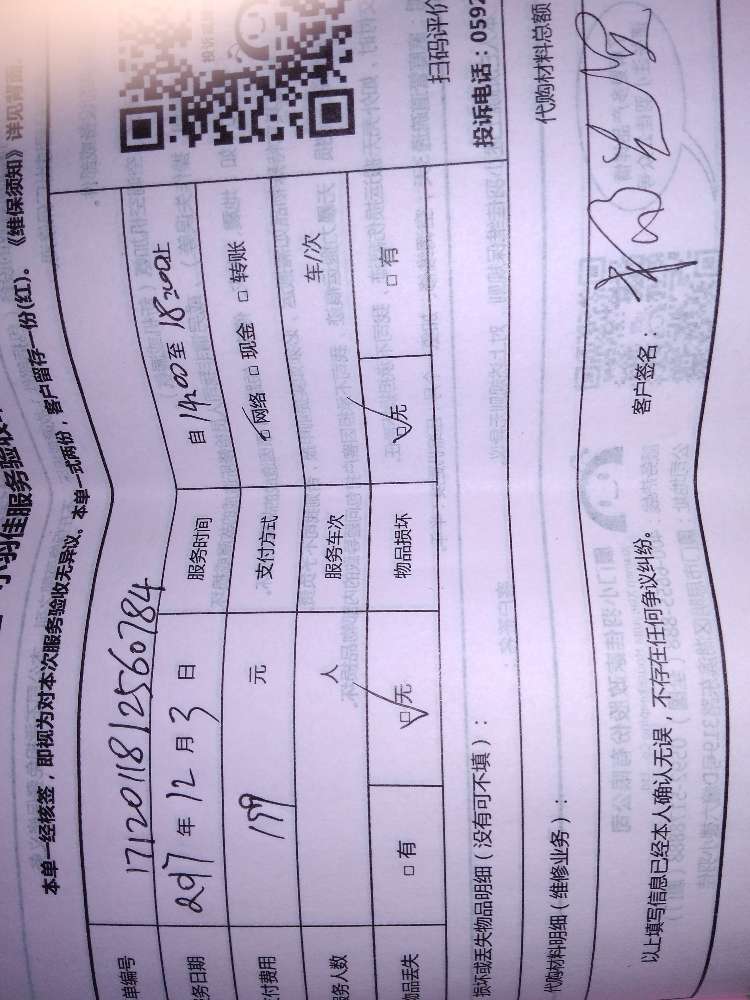 小羽佳服务验收
本单一经核签，即视为对本次服务验收无异议。本单一式两份，客户留存一份(红)。《维保须知》详见背面。
单编号 1712011812560784
务日期 2017年12月3日 服务时间 自14:00至18:00止
付费用 199元 支付方式 ☑网络 □现金 □转账
服务人数 人 服务车次 车/次
物品丢失 □有 ☑无 物品损坏 ☑无 □有
扫码评价
投诉电话：0592
损坏或丢失物品明细（没有可不填）：
代购材料明细（维修业务）： 代购材料总额
以上填写信息已经本人确认无误，不存在任何争议纠纷。 客户签名：